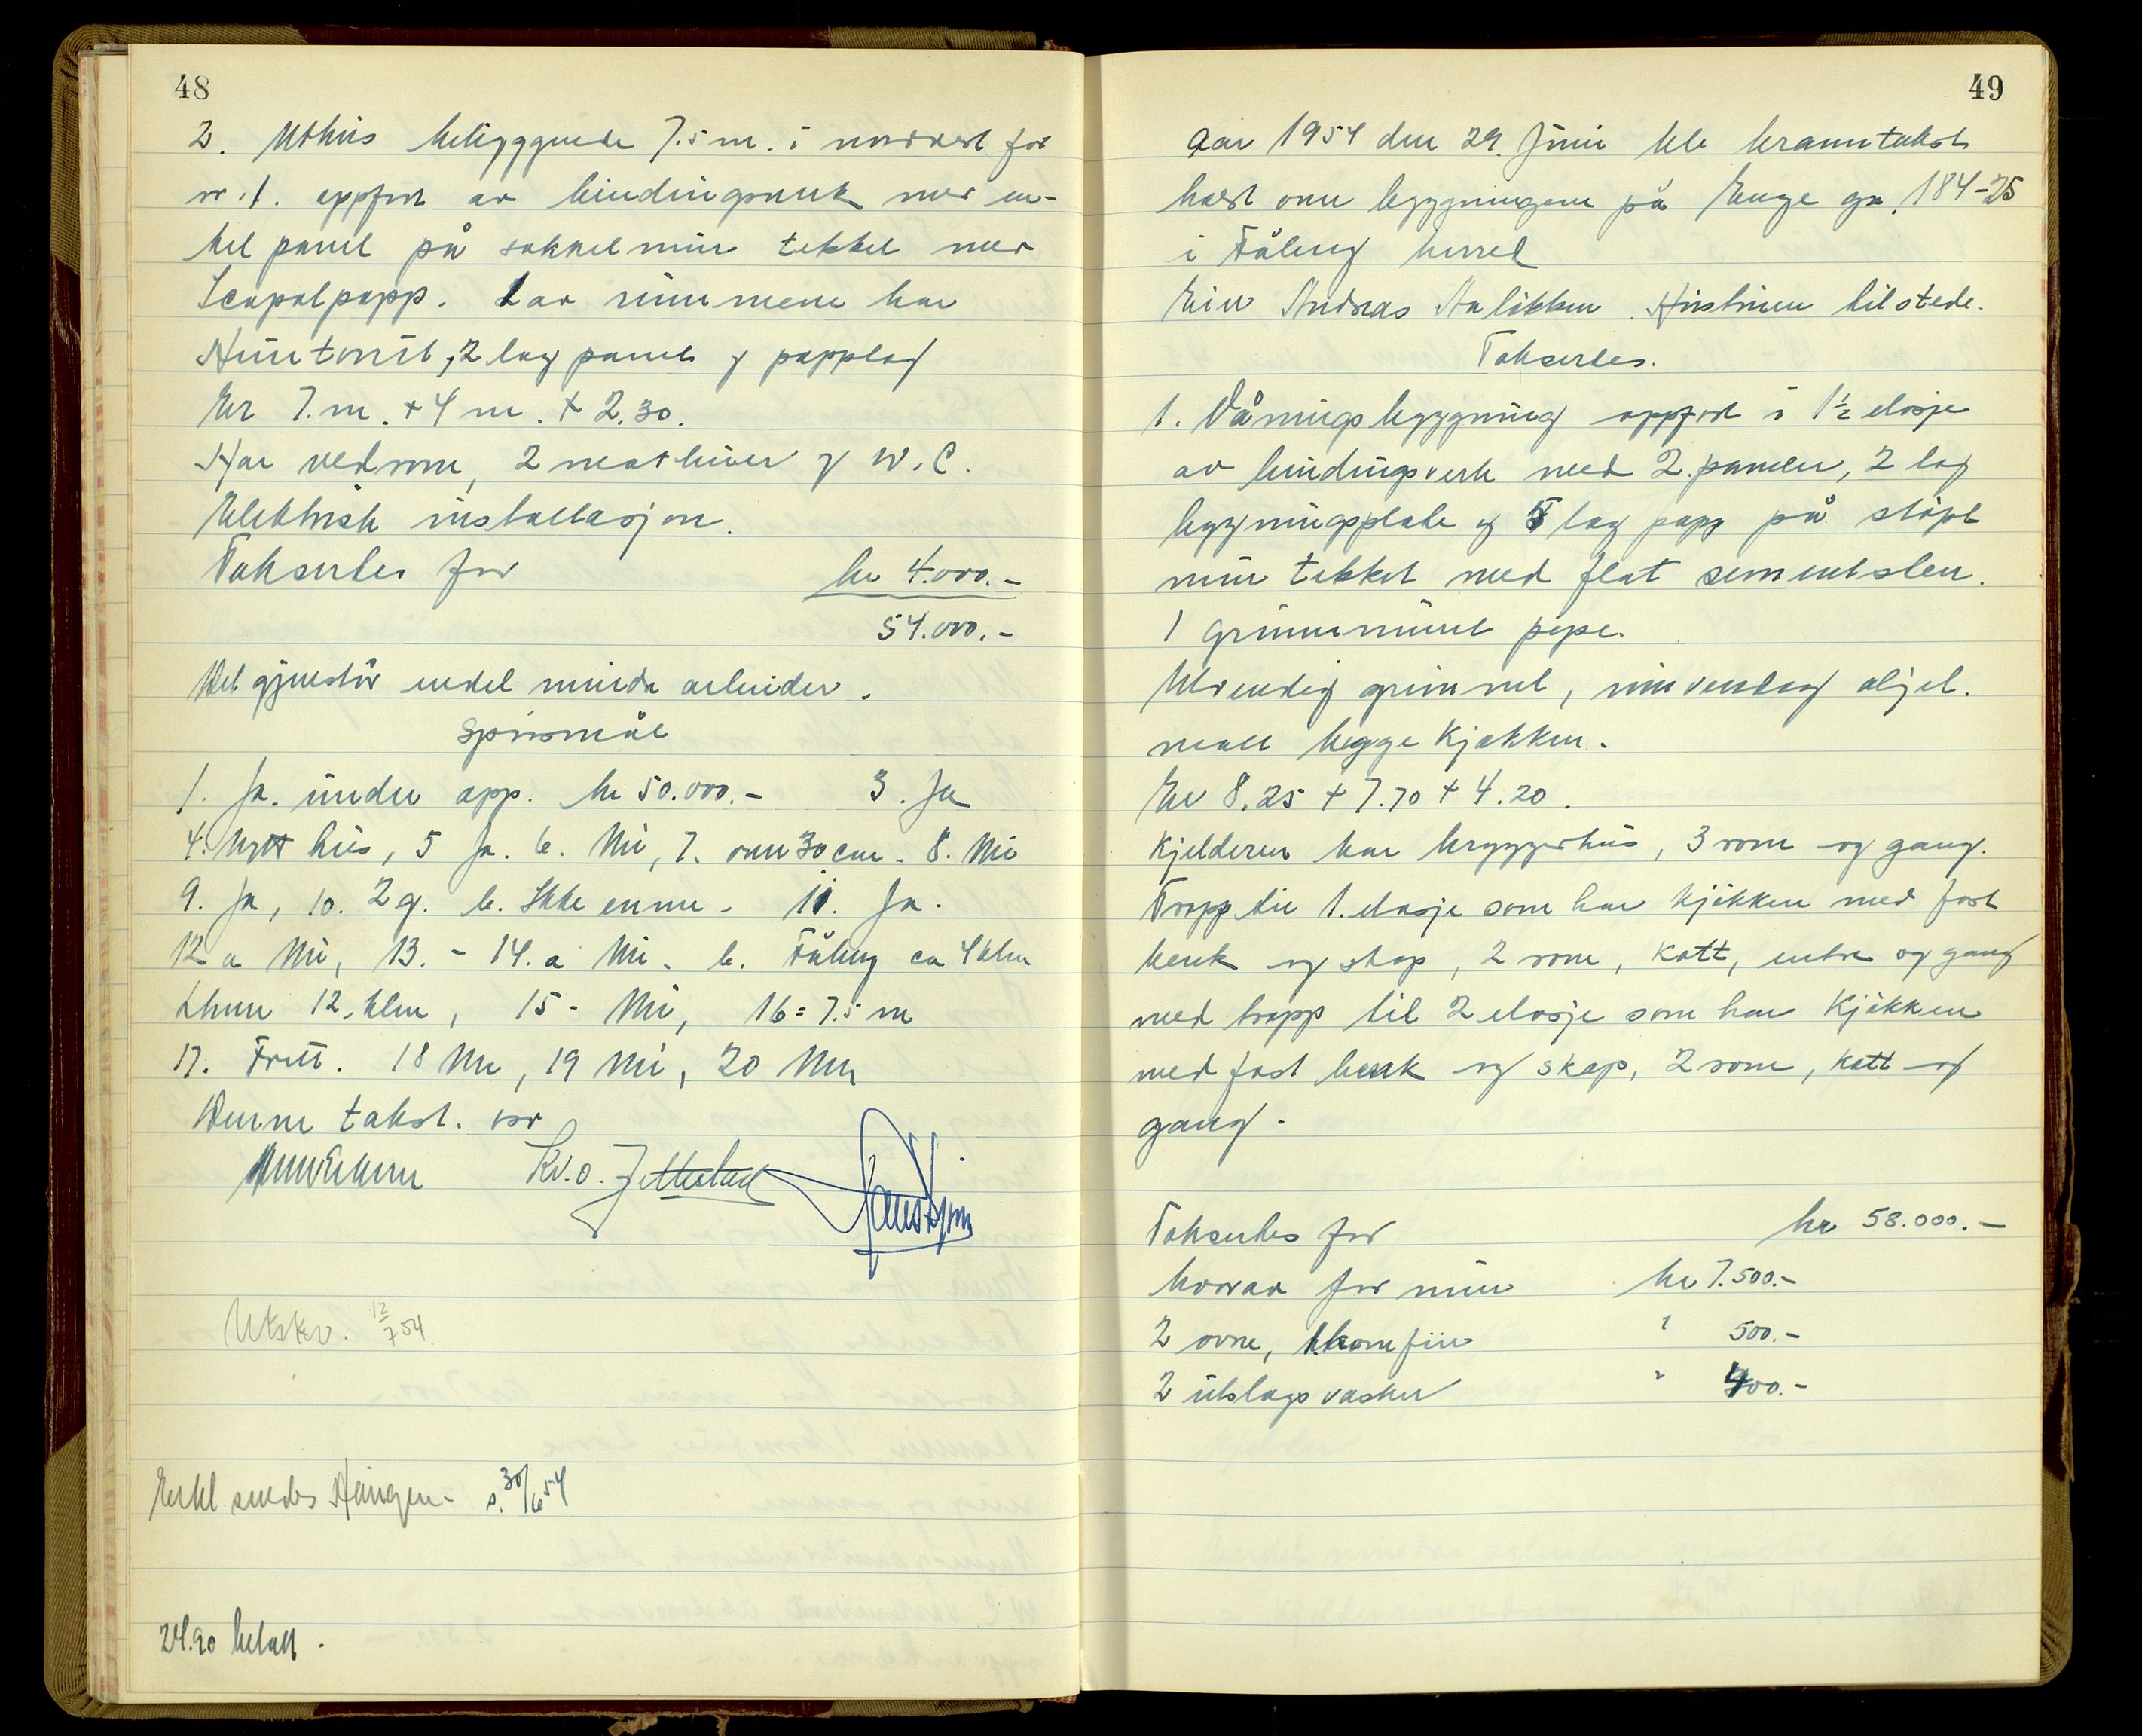 48
2. Uthus beliggende 7.5 m. i nordvest for
nr. 1. oppført av bindingsverk med en-
kel panel på sokkelmur tekket med
Icopalpapp. 1 av rummene har
Huntonit, 2 lag panel og papplag
Er 7. m. + 4 m. + 2.30.
Har vedrom, 2 matbuer og W.C.
Elektrisk installasjon.
Takseres for kr 4.000.-
54.000.-
Det gjenstår endel mindre arbeider.
Spørsmål
1. Ja. under opp. kr 50.000.- 3. Ja
4. Nytt hus, 5 Ja. 6. Nei, 7. over 30 cm. 8. Nei
9. Ja, 10. 2 g. b. Ikke ennu. 11. Ja.
12 a Nei, 13. - 14. a Nei. b. Fåberg ca 4 klm
Lhmr 12. klm, 15 - Nei, 16 = 7.5 m
17. Fritt. 18 Nei, 19 Nei, 20 Nei
Denne takst. vor
Kv. O. Jettestad
Utskr. 12/7 54
Enkl sendes Haugen s. 30/6 54
24.90 betalt.
49
Aar 1954 den 29. Juni ble branntakst
holdt over bygningene på Enge gn. 184-25
i Fåberg herred
Eier Andreas Aaløkken. Hustruen tilstede.
Takseres.
1. Våningsbygning oppført i 1½ etasje
av bindingsverk med 2 paneler, 2 lag
bygningsplate og 5 lag papp på støpt
mur tekket med flat sementsten.
1 grunnmuret pipe.
Utvendig grunnet, innvendig oljet.
malt begge kjøkken.
Er 8.25 + 7.70 + 4.20.
Kjelderen har bryggerhus, 3 rom og gang.
Trapp til 1. etasje som har kjøkken med fast
benk og skap, 2 rom, kott, entre og gang
med trapp til 2 etasje som har kjøkken
med fast benk og skap, 2 rom, kott og
gang.
Takseres for kr 58.000.-
hvorav for mur kr 7.500.-
2 ovne, 1 komfür " 500.-
2 utslagsvasker " 400.-